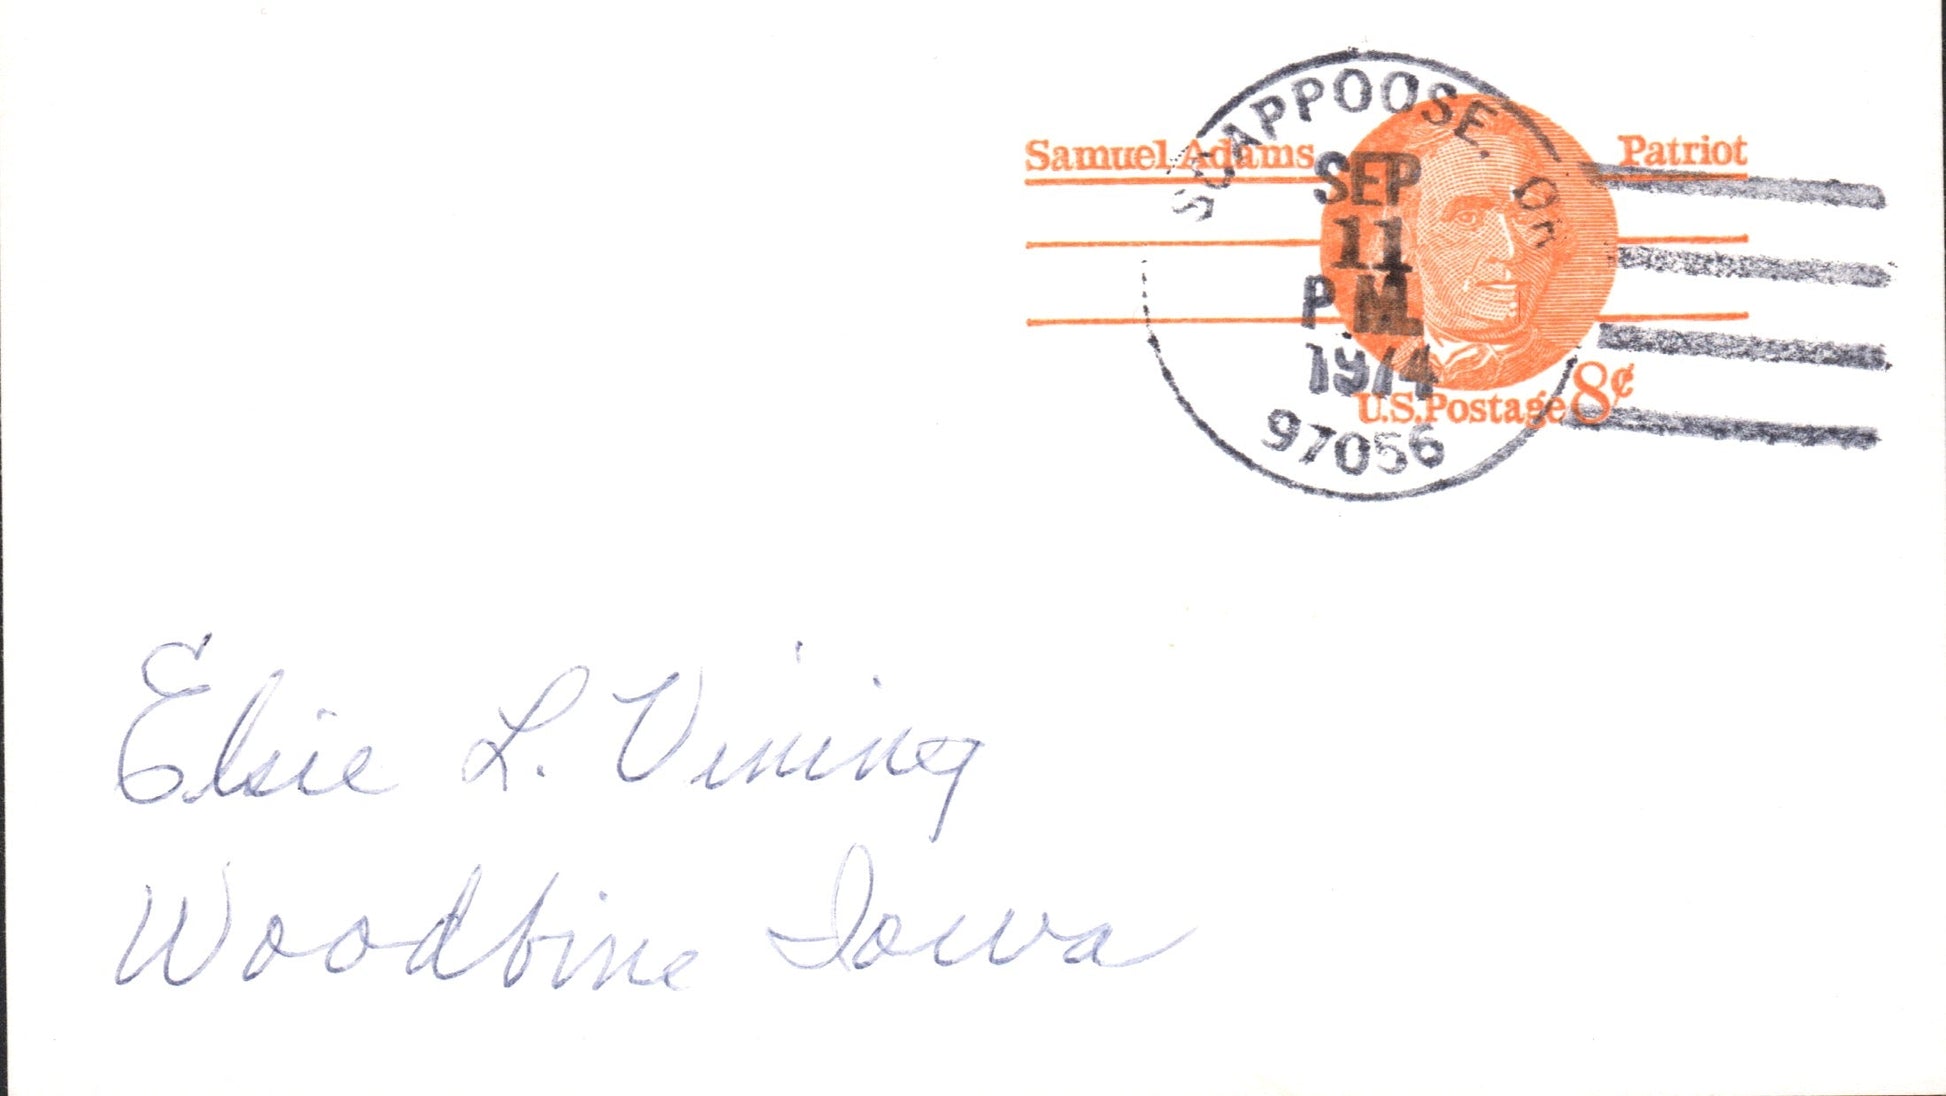 SCAPPOOSE, OR
Samuel Adams Patriot
SEP
11
P.M.
1974
U.S. Postage 8¢
97056
Elsie L. Vining
Woodbine Iowa